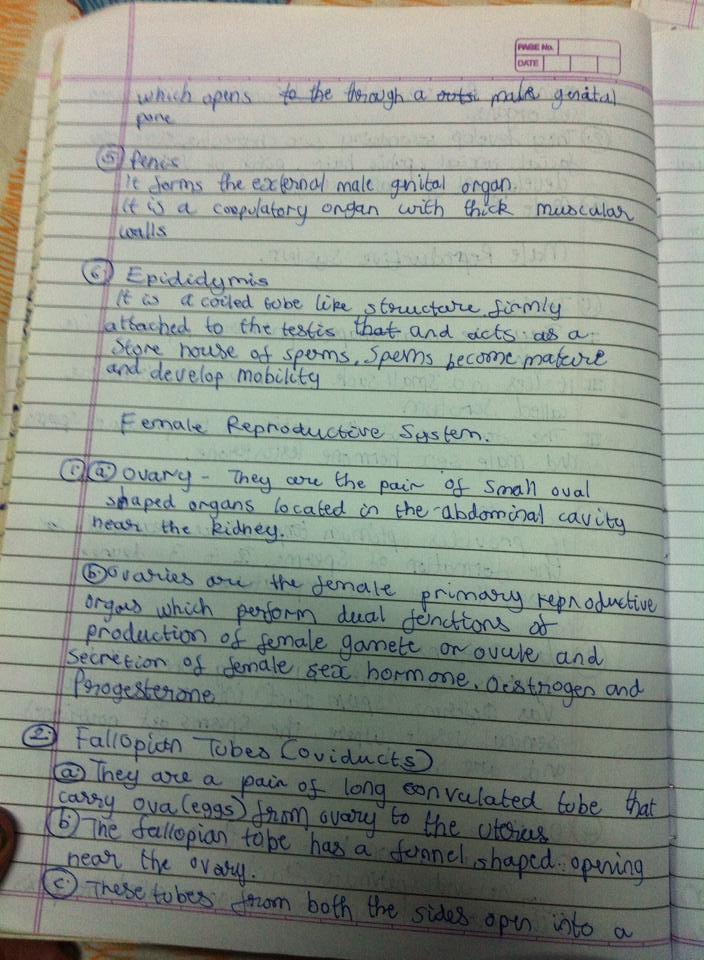 PAGE No.
DATE
which opens to the through a outs male genital
pore
5 Penis
It forms the external male genital organ.
It is a coopulatory organ with thick muscular
walls
6 Epididymis
It is a coiled tube like structure firmly
attached to the testis that and acts as a
store house of sperms. Sperms become mature
and develop mobility
Female Reproductive System.
1. a. Ovary - They are the pair of small oval
shaped organs located in the abdominal cavity
near the kidney.
b. Ovaries are the female primary reproductive
orgas which perform dual functions of
production of female gamete or ovule and
secretion of female sex hormone. Oestrogen and
Progesterone
2. Fallopian Tubes (oviducts)
a. They are a pair of long convulated tube that
carry ova (eggs) from ovary to the uterus
b. The fallopian tube has a funnel shaped opening
near the ovary.
c. These tubes from both the sides open into a